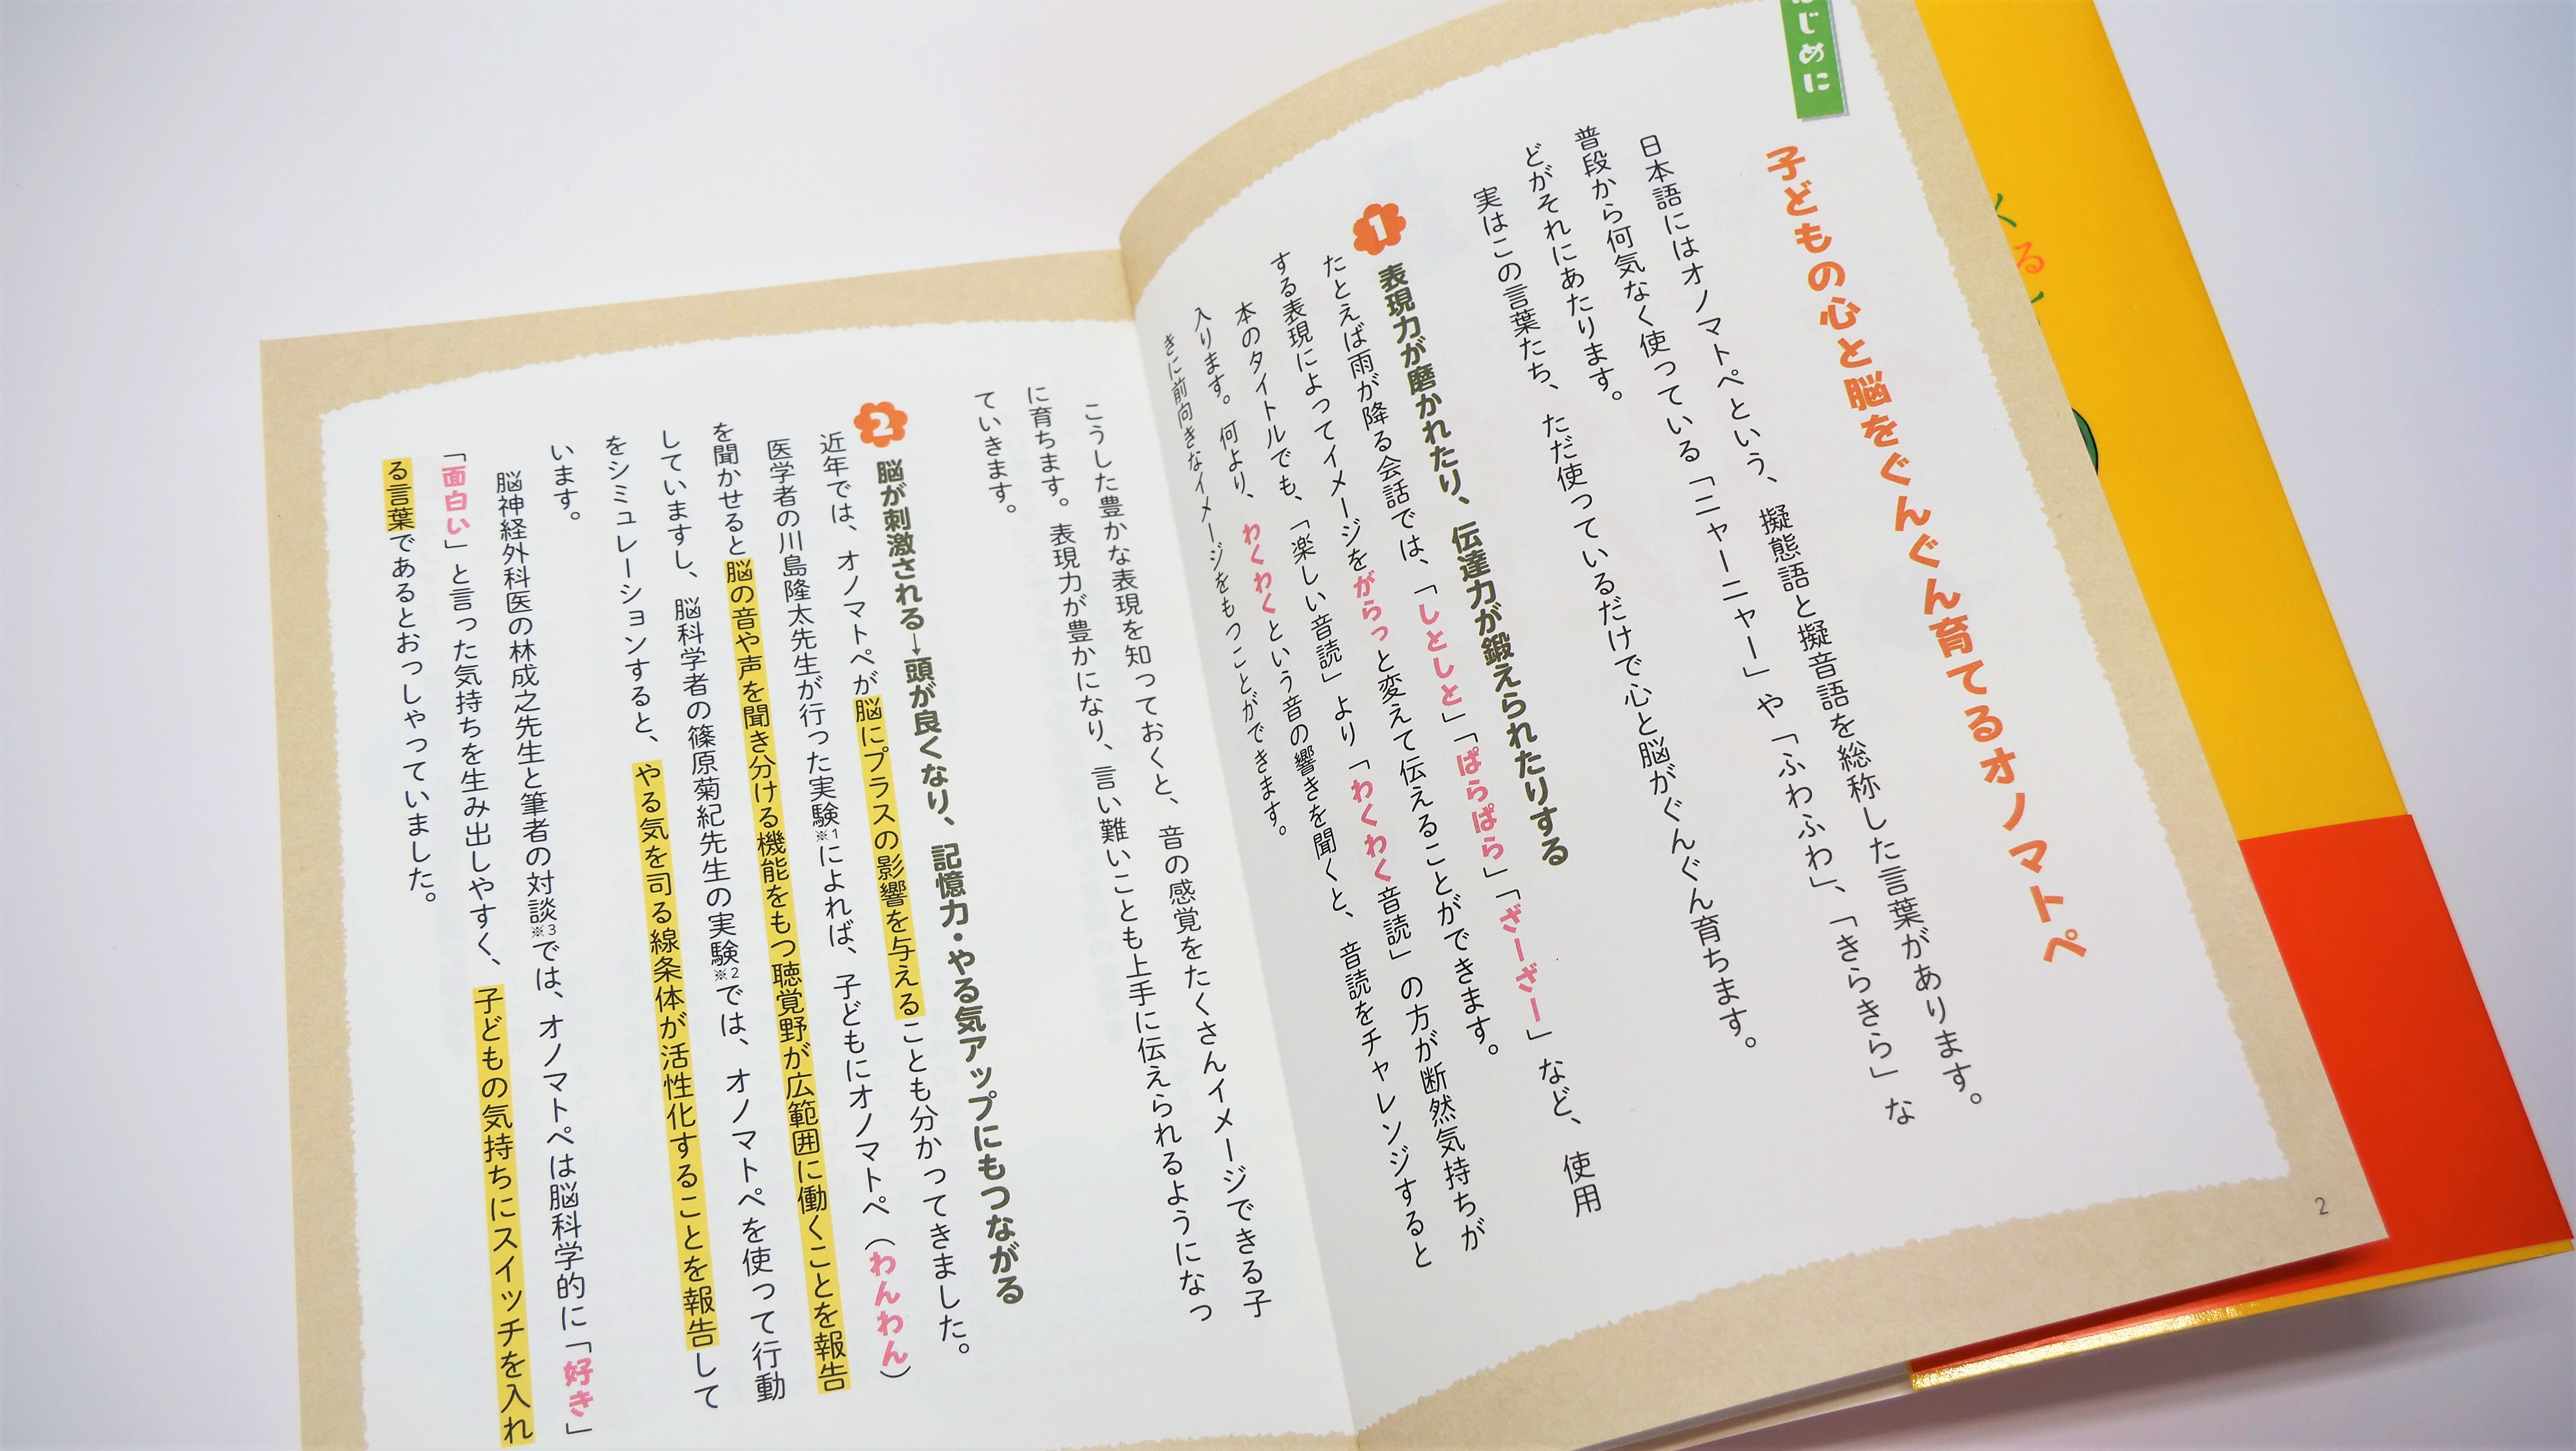 はじめに
子どもの心と脳をぐんぐん育てるオノマトペ
日本語にはオノマトペという、擬態語と擬音語を総称した言葉があります。
普段から何気なく使っている「ニャーニャー」や「ふわふわ」、「きらきら」な
どがそれにあたります。
実はこの言葉たち、ただ使っているだけで心と脳がぐんぐん育ちます。
1 表現力が磨かれたり、伝達力が鍛えられたりする
たとえば雨が降る会話では、「しとしと」「ぱらぱら」「ざーざー」など、使用
する表現によってイメージをがらっと変えて伝えることができます。
本のタイトルでも、「楽しい音読」より「わくわく音読」の方が断然気持ちが
入ります。何より、わくわくという音の響きを聞くと、音読をチャレンジすると
きに前向きなイメージをもつことができます。
こうした豊かな表現を知っておくと、音の感覚をたくさんイメージできる子
に育ちます。表現力が豊かになり、言い難いことも上手に伝えられるようになっ
ていきます。
2 脳が刺激される→頭が良くなり、記憶力・やる気アップにもつながる
近年では、オノマトペが脳にプラスの影響を与えることも分かってきました。
医学者の川島隆太先生が行った実験※1によれば、子どもにオノマトペ（わんわん）
を聞かせると脳の音や声を聞き分ける機能をもつ聴覚野が広範囲に働くことを報告
していますし、脳科学者の篠原菊紀先生の実験※2では、オノマトペを使って行動
をシミュレーションすると、やる気を司る線条体が活性化することを報告して
います。
脳神経外科医の林成之先生と筆者の対談※3では、オノマトペは脳科学的に「好き」
「面白い」と言った気持ちを生み出しやすく、子どもの気持ちにスイッチを入れ
る言葉であるとおっしゃっていました。
2